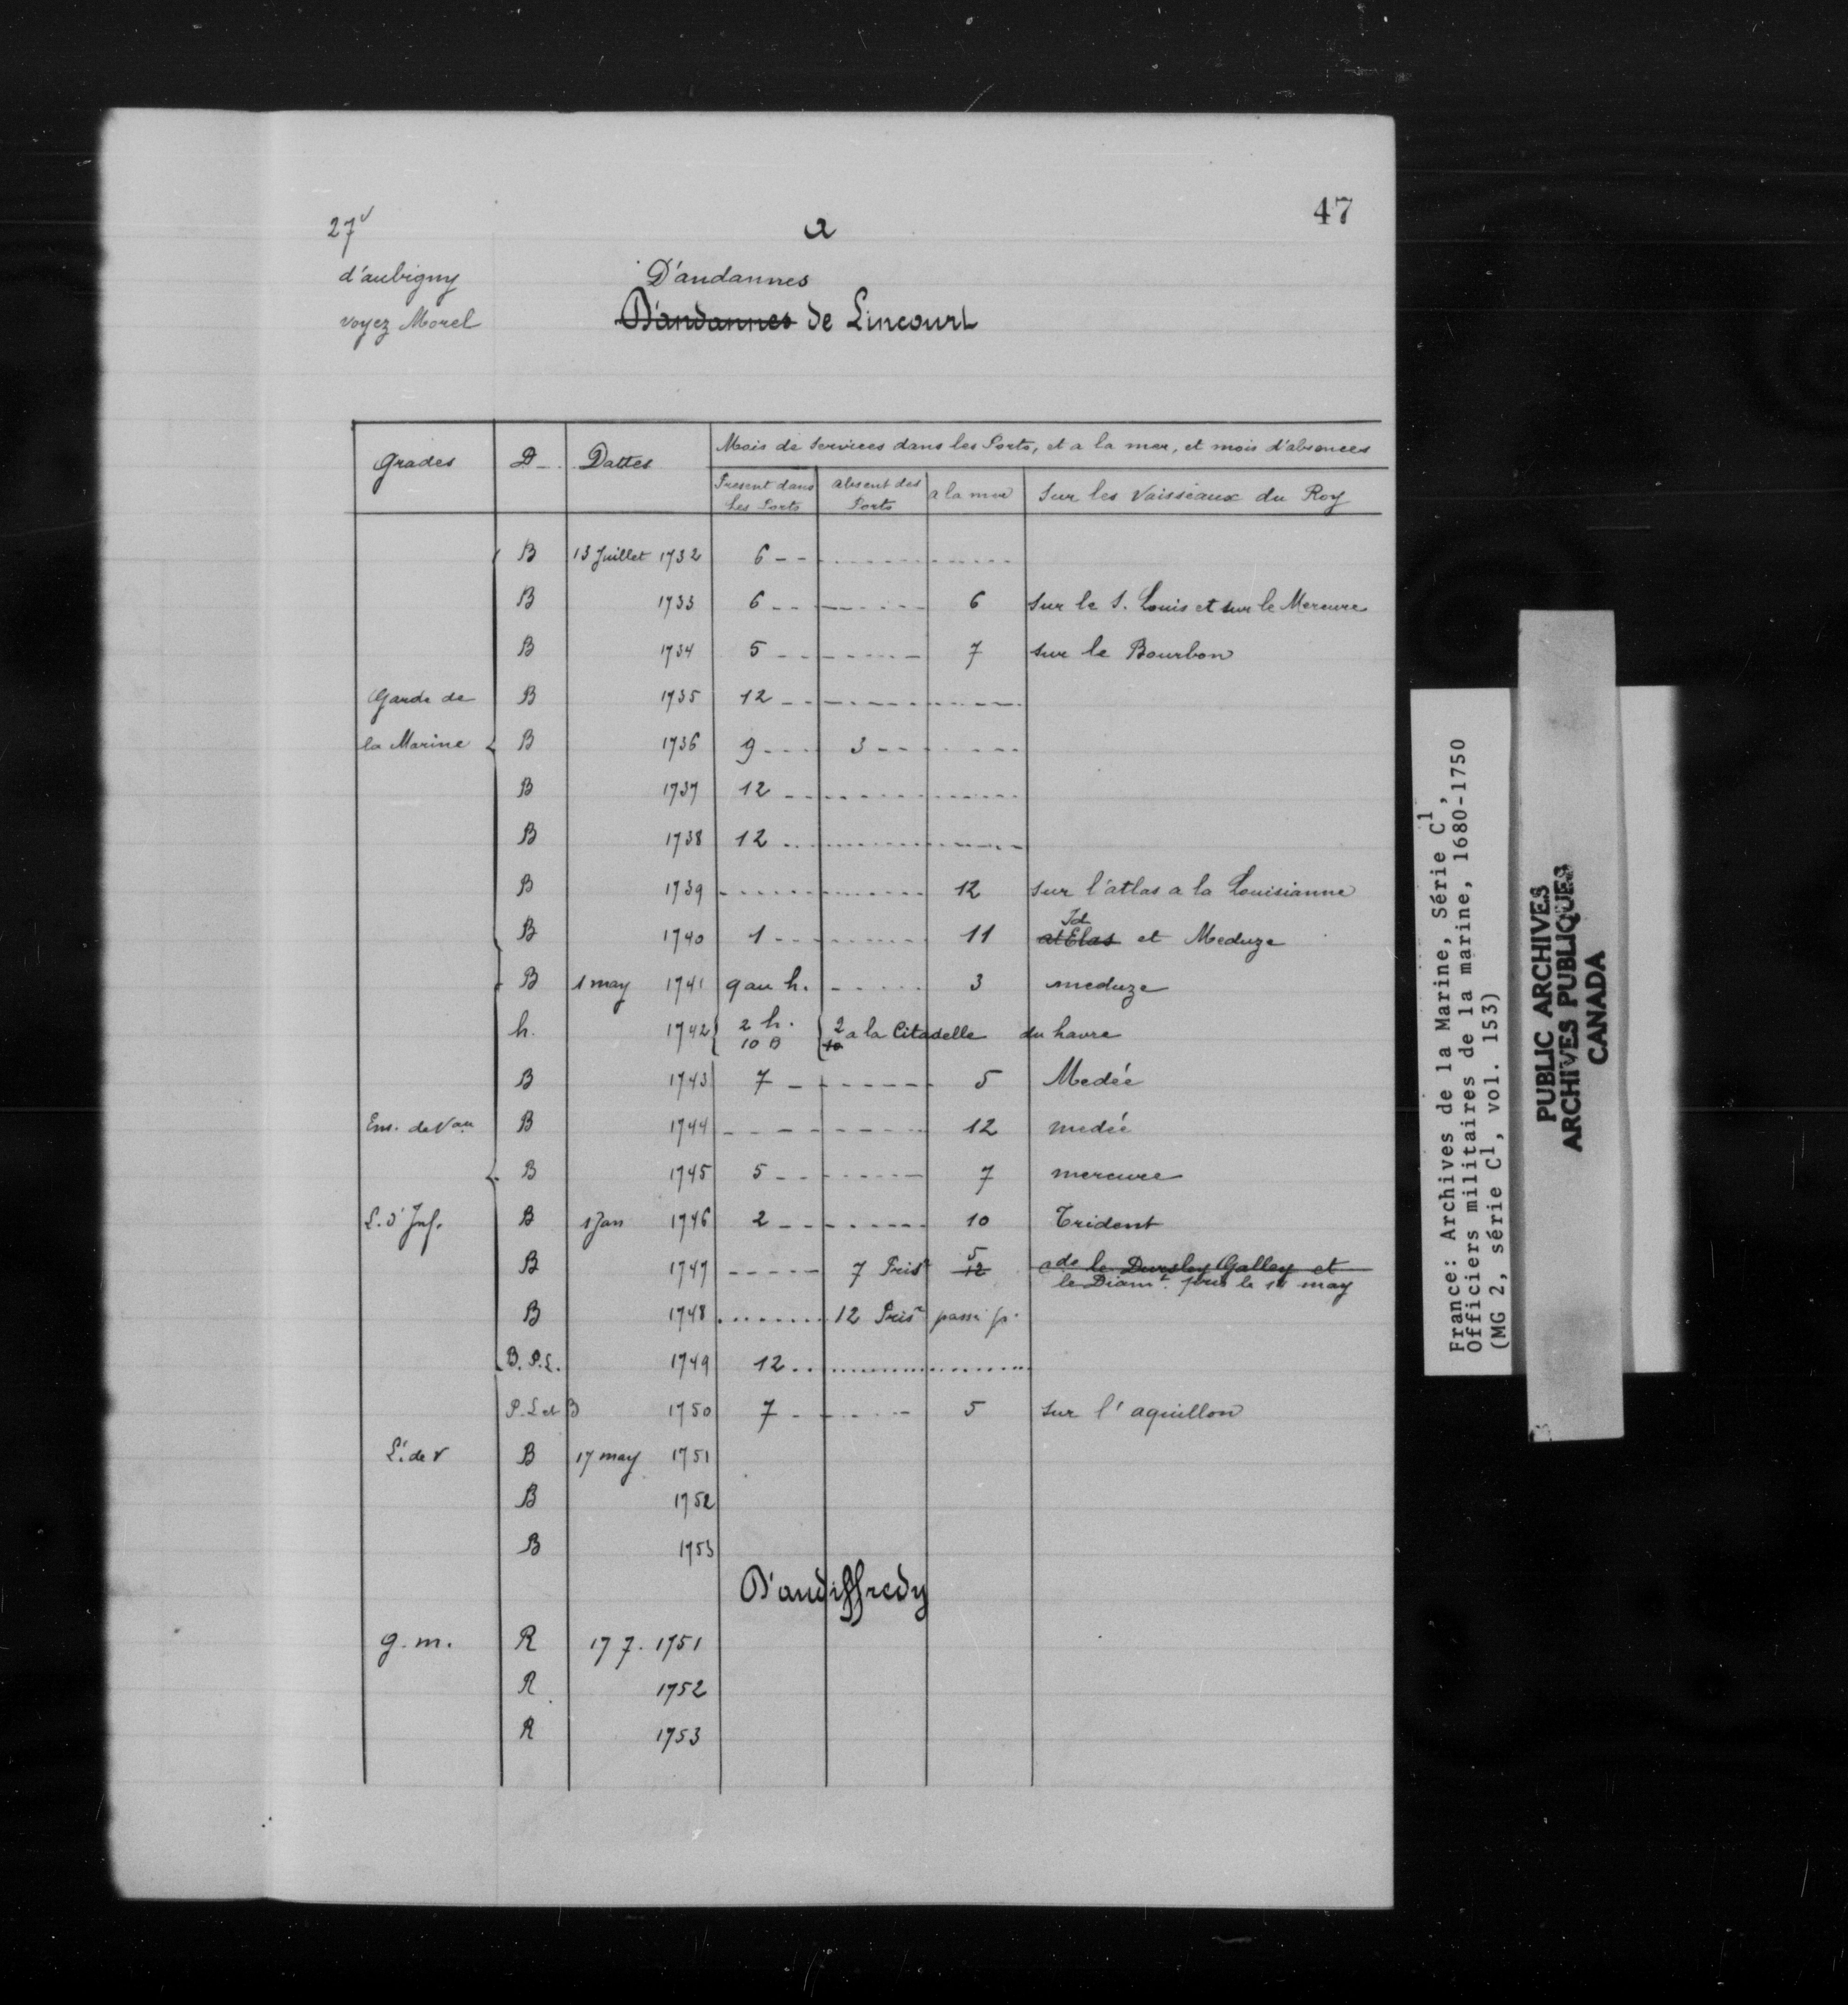 47
27v
a
d'aubigny
D'andannes
voyez Morel
D'andannes de Lincourt
Grades D Dattes Mois de services dans les Ports, et a la mer, et mois d'absences
Present dans les Ports absent des Ports a la mer Sur les Vaisseaux du Roy
B 13 Juillet 1732 6
B 1733 6 6 sur le S. Louis et sur le Mercure
B 1734 5 7 sur le Bourbon
Garde de B 1735 12
la Marine B 1736 9 3
B 1737 12
B 1738 12
B 1739 12 sur l'atlas a la Louisianne
B 1740 1 11 Id atElas et Meduze
B 1 may 1741 9 au h. 3 meduze
h. 1742 2 h. 2 a la Citadelle du havre
10 B 10
B 1743 7 5 Medée
Ens. de Vau B 1744 12 medée
B 1745 5 7 mercure
L. d'Inf. B 1 Jan 1746 2 10 Trident
B 1747 7 Prisr 5 12 ade le Dursley Galley et
le Diamt pris le 14 may
B 1748 12 Prisr passé
B. P.L. 1749 12
P.L et B 1750 7 5 sur l'aquillon
Lt de v B 17 may 1751
B 1752
B 1753
D'andiffredy
g. m. R 17 7. 1751
R 1752
R 1753
France: Archives de la Marine, Série C1,
Officiers militaires de la marine, 1680-1750
(MG 2, série C1, vol. 153)
PUBLIC ARCHIVES
ARCHIVES PUBLIQUES
CANADA